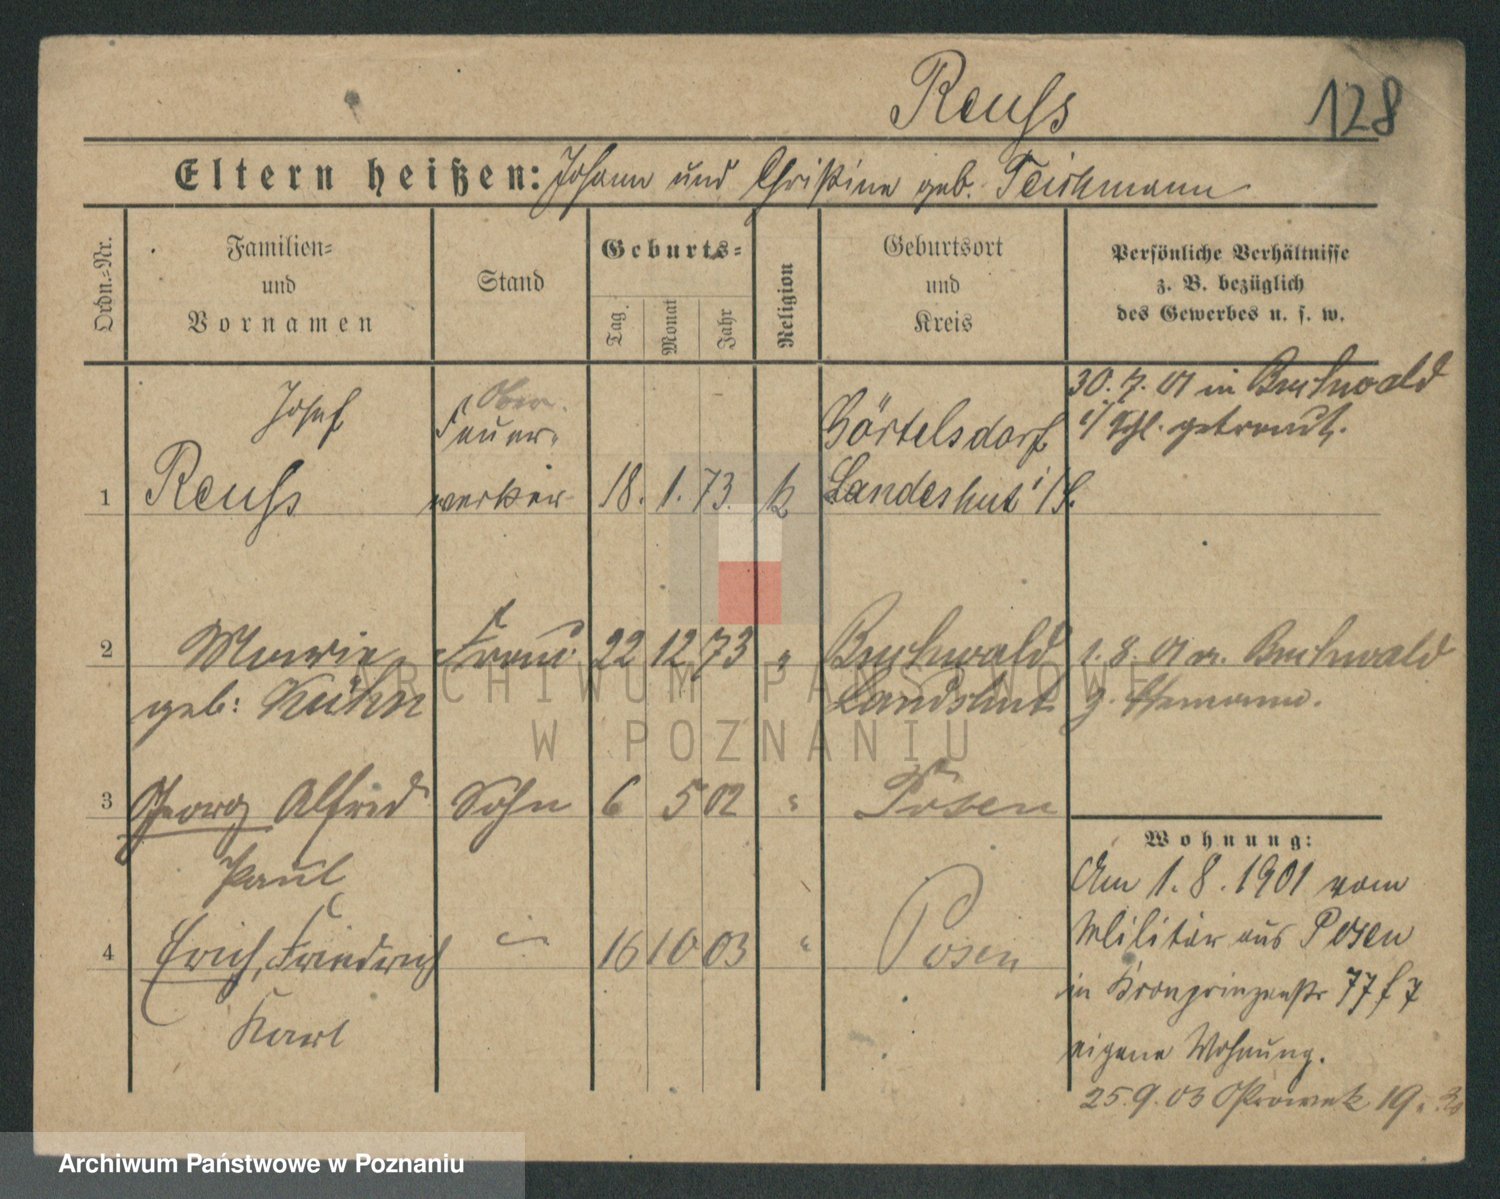 Reuß
128
Eltern heißen: Johann und Christine geb. Teichmann
Ordn.-Nr.
Familien-
und
Vornamen
Stand
Geburts-
Tag.
Monat
Jahr
Religion
Geburtsort
und
Kreis
Persönliche Verhältnisse
z. B. bezüglich
des Gewerbes u. s. w.
1
Josef
Reuß
Ober
Feuer-
werker
18. 1. 73.
k
Görtelsdorf
Landeshut i/S.
30. 7. 01 in Buchwald
i/ Schl. getraut.
2
Marie
geb: Kühn
Frau
22 12 73
"
Buchwald
Landshut
1. 8. 01 v. Buchwald
z. Ehemann.
3
Georg Alfrid
Paul
Sohn
6 5 02
"
Posen
4
Erich, Friedrich
Karl
"
16 10 03
"
Posen
Wohnung:
Am 1. 8. 1901 vom
Militär aus Posen
in Kronprinzenstr 77
eigene Wohnung.
25. 9. 03 19.
ARCHIWUM PAŃSTWOWE
W POZNANIU
Archiwum Państwowe w Poznaniu